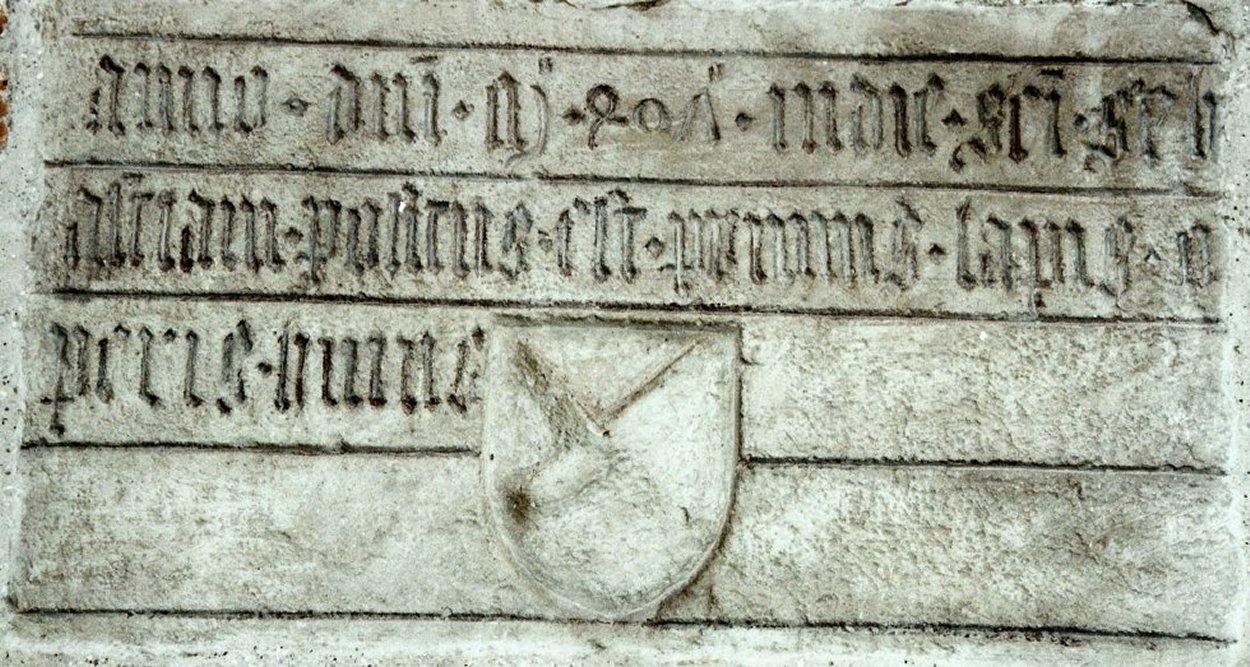 anno · dn̄i · m · 407 · in die · sc̄i · seb
astiani · positus · est · primus · lapis · o
peris · huius